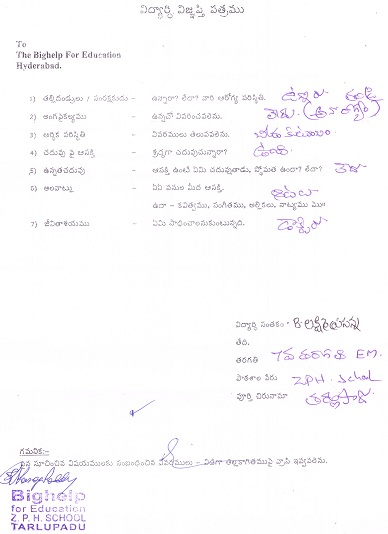 విద్యార్థి విజ్ఞప్తి పత్రము
To
The Bighelp For Education
Hyderabad.
1) తల్లిదండ్రులు / సంరక్షకుడు - ఉన్నారా? లేరా? వారి ఆరోగ్య పరిస్థితి. ఉన్నారు.
2) అంగవైకల్యము - ఉన్నచో వివరించవలెను. లేదు
3) ఆర్థిక పరిస్థితి - వివరములు తెలుపవలెను.
4) చదువు పై ఆసక్తి - శ్రద్ధగా చదువుచున్నారా? ఉంది
5) ఉన్నతచదువు - ఆసక్తి ఉంటే ఏమి చదువుతాడు, స్తోమత ఉందా? లేదా? లేదు
6) అలవాట్లు - ఏ పనుల మీద ఆసక్తి. ఆటలు
ఉదా - కవిత్వము, సంగీతము, అల్లికలు, నాట్యము మొ॥
7) జీవితాశయము - ఏమి సాధించాలనుకుంటున్నది. డాక్టర్
విద్యార్థి సంతకం - B. లక్ష్మీ ప్రసన్న
తేది.
తరగతి 7వ తరగతి EM.
పాఠశాల పేరు ZPH. School
పూర్తి చిరునామా తర్లుపాడు
గమనిక:-
పైన సూచించిన విషయములకు సంబంధించిన వివరములు - విడిగా తెల్లకాగితముపై వ్రాసి ఇవ్వవలెను.
Bighelp
for Education
Z. P. H. SCHOOL
TARLUPADU